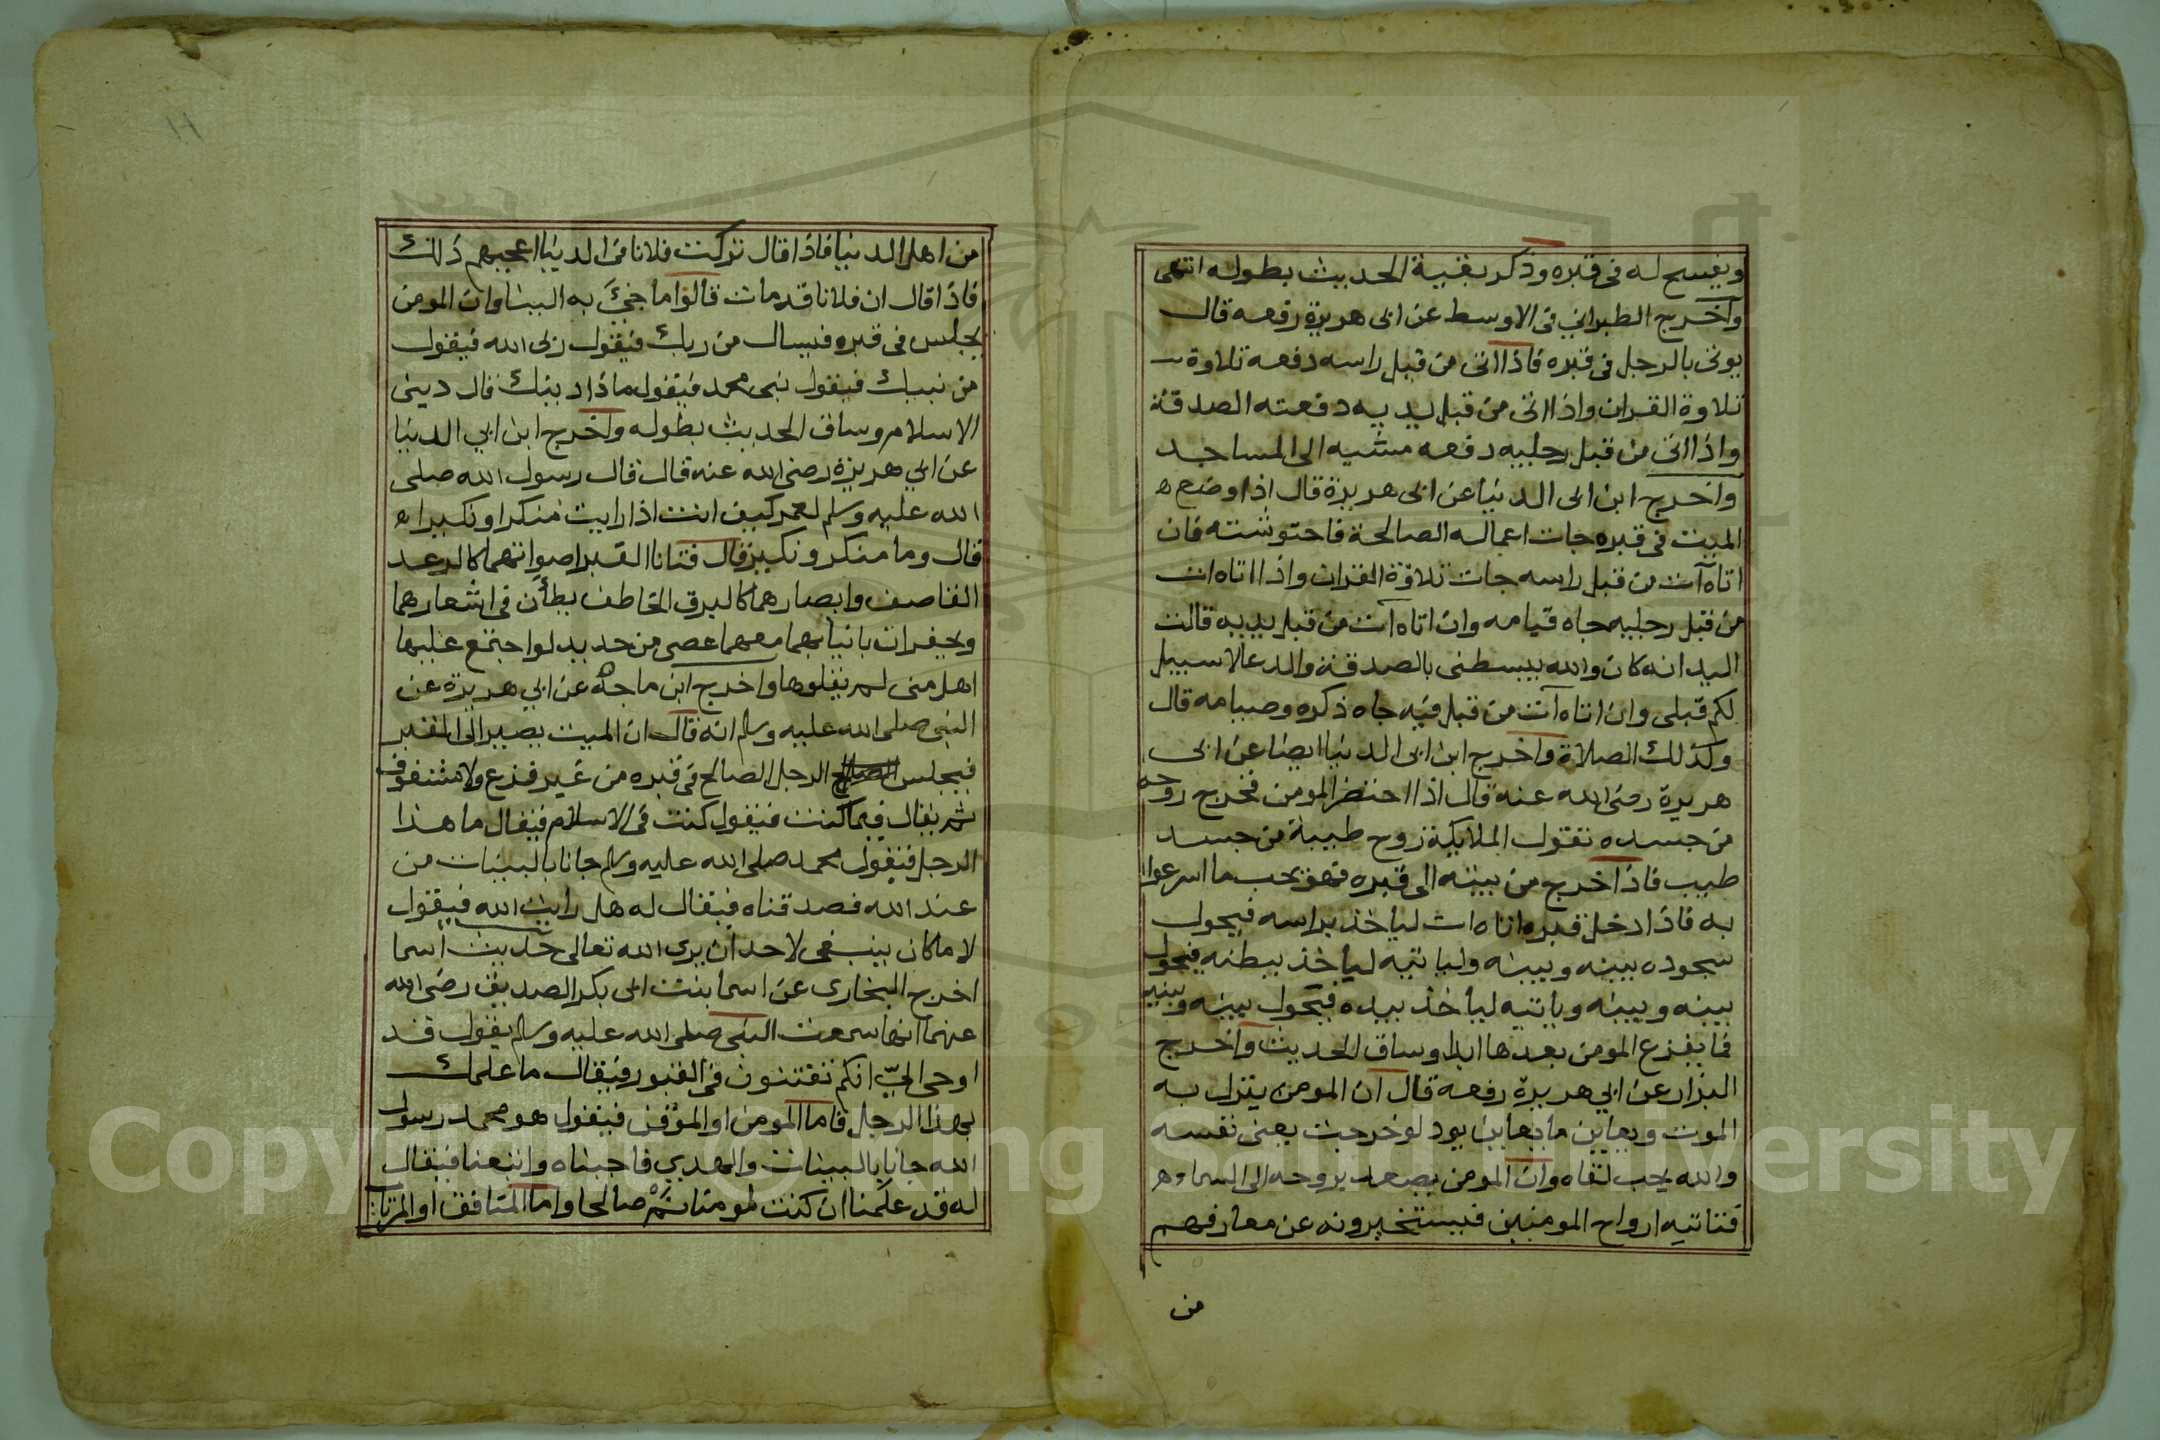 ويفسح له فى قبره وذكر بقية الحديث بطوله انتهى
واخرج الطبراني فى الاوسط عن ابى هريرة رفعه قال
يوتى بالرجل فى قبره فاذا اتى من قبل راسه دفعه تلاوة
تلاوة القران واذا اتى من قبل يديه دفعته الصدقة
واذا اتى من قبل رجليه دفعه مشيه الى المساجد
واخرج ابن ابى الدنيا عن ابى هريرة قال اذا وضع
الميت فى قبره جات اعماله الصالحة فاحتوشته فان
اتاه آت من قبل راسه جات تلاوة القران واذا اتاه ات
من قبل رجليه جاه قيامه وان اتاه آت من قبل يديه قالت
اليد انه كان والله يبسطنى بالصدقة والدعا لا سبيل
لكم قبلى وان اتاه آت من قبل فيه جاه ذكره وصيامه قال
وكذلك الصلاة واخرج ابن ابى الدنيا ايضا عن ابى
هريرة رضى الله عنه قال اذا احتضر المومن فخرج روحه
من جسده تقول الملايكة روح طيبة من جسد
طيب فاذا اخرج من بيته الى قبره فهو يحب ما اسرعوا
به فاذا ادخل قبره اتاه ات لياخذ براسه فيحول
سجوده بينه وبينه ولياتيه لياخذ ببطنه فيحول
بينه وبينه وياتيه لياخذ بيده فيحول بينه وبينه
فما يفزع المومن بعدها ابدا وساق الحديث واخرج
البزار عن ابي هريرة رفعه قال ان المومن ينزل به
الموت ويعاين ما يعاين يود لو خرجت يعنى نفسه
والله يحب لقاه وان المومن يصعد بروحه الى السماء
فتاتيه ارواح المومنين فيستخبرونه عن معارفهم
من
من اهل الدنيا فاذا قال تركت فلانا فى الدنيا اعجبهم ذلك
فاذا قال ان فلانا قد مات قالوا ما جئ به الينا وان المومن
يجلس فى قبره فيسال من ربك فيقول ربى الله فيقول
من نبيك فيقول نبى محمد فيقول ماذا دينك قال دينى
الاسلام وساق الحديث بطوله واخرج ابن ابي الدنيا
عن ابي هريرة رضى الله عنه قال قال رسول الله صلى
الله عليه وسلم لعمر كيف انت اذا رايت منكرا ونكيرا
قال وما منكر ونكير قال فتانا القبر اصواتهما كالرعد
القاصف وابصارهما كالبرق الخاطف يطأن فى اشعارهما
ويحفران بانيابهما معهما عصى من حديد لو اجتمع عليها
اهل منى لم يقلوها واخرج ابن ماجه عن ابي هريرة عن
النبى صلى الله عليه وسلم انه قال ان الميت يصير الى القبر
فيجلس الرجل الصالح فى قبره من غير فزع ولا مشغوف
ثم يقال فيما كنت فيقول كنت فى الاسلام فيقال ما هذا
الرجل فيقول محمد صلى الله عليه وسلم جانا بالبينات من
عند الله فصدقناه فيقال له هل رايت الله فيقول
لا ما كان ينبغى لاحد ان يرى الله تعالى حديث اسما
اخرج البخارى عن اسما بنت ابى بكر الصديق رضى الله
عنهما انها سمعت النبى صلى الله عليه وسلم يقول قد
اوحى الىّ انكم تفتنون فى القبور فيقال ما علمك
بهذا الرجل فاما المومن او الموقن فيقول هو محمد رسول
الله جانا بالبينات والهدي فاجبناه واتبعنا فيقال
له قد علمنا ان كنت لمومنا نم صالحا واما المنافق او المرتاب
Copyright © King Saud University